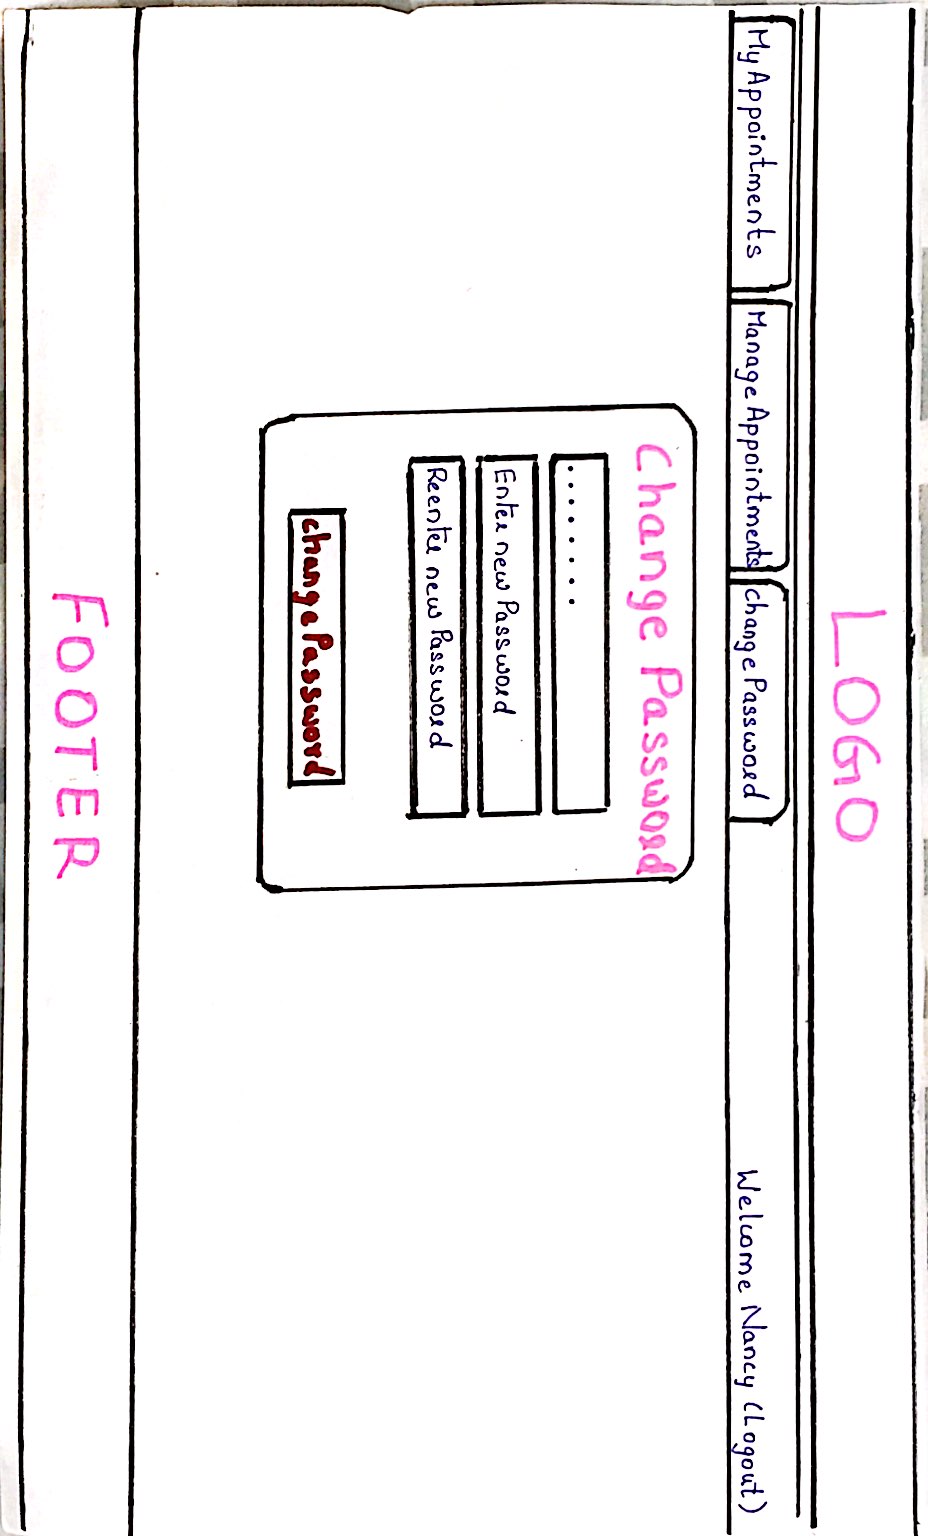 LOGO
My Appointments Manage Appointments Change Password Welcome Nancy (Logout)
Change Password
.......
Enter new Password
Reenter new Password
change Password
FOOTER